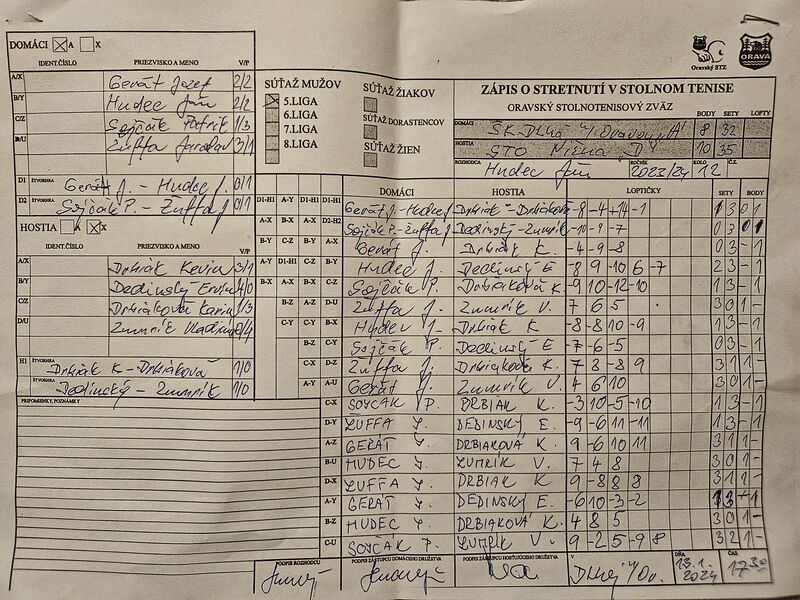 DOMÁCI A X
IDENT.ČÍSLO PRIEZVISKO A MENO V/P
A/X Gerát Jozef 2/2
B/Y Hudec Ján 2/2
C/Z Sojčák Patrik 1/3
D/U Žuffa Jaroslav 3/1
D1 ŠTVORHRA Gerát J. - Hudec J. 0/1
D2 ŠTVORHRA Sojčák P. - Žuffa J. 0/1
HOSTIA A X
IDENT.ČÍSLO PRIEZVISKO A MENO V/P
A/X Drbiak Kevin 3/1
B/Y Dedinský Ervín 4/0
C/Z Drbiaková Karin 1/3
D/U Zumrík Vladimír 0/4
H1 ŠTVORHRA Drbiak K - Drbiaková 1/0
ŠTVORHRA Dedinský - Zumrík 1/0
PRIPOMIENKY, POZNÁMKY
SÚŤAŽ MUŽOV
5.LIGA
6.LIGA
7.LIGA
8.LIGA
SÚŤAŽ ŽIAKOV
SÚŤAŽ DORASTENCOV
SÚŤAŽ ŽIEN
Oravský STZ
ORAVA
ZÁPIS O STRETNUTÍ V STOLNOM TENISE
ORAVSKÝ STOLNOTENISOVÝ ZVÄZ
BODY SETY LOPTY
DOMÁCI ŠK Dlhá n/Oravou "A" 8 32
HOSTIA STO Nižná "D" 10 35
ROZHODCA Hudec Ján ROČNÍK 2023/24 KOLO 12 Č.Z.
DOMÁCI HOSTIA LOPTIČKY SETY BODY
D1-H1 A-Y D1-H1 D1-H1 Gerát J.-Hudec J. Drbiak - Drbiaková -8 -4 +14 -1 1 3 0 1
A-X B-X A-X D2-H2 Sojčák P.-Žuffa J. Dedinský-Zumrík -10 -9 -7 0 3 0 1
B-Y C-Z B-Y A-X Gerát J. Drbiak K. -4 -9 -8 0 3 - 1
A-Y D1-H1 C-Z B-Y Hudec J. Dedinský E -8 9 -10 6 -7 2 3 - 1
B-X A-X B-X C-Z Sojčák P. Drbiaková K -9 10 -12 -10 1 3 - 1
B-Z A-Z D-U Žuffa J. Zumrík V. 7 6 5 3 0 1 -
C-Y C-Y B-X Hudec J. Drbiak K -8 -8 10 -9 1 3 - 1
B-Z C-Y Sojčák P. Dedinský E -7 -6 -5 0 3 - 1
C-X D-Z Žuffa J. Drbiaková K 7 3 -8 9 3 1 1 -
A-Y A-U Gerát J. Zumrík V 4 6 10 3 0 1 -
C-X SOJČÁK P. DRBIAK K. -3 10 -5 -10 1 3 - 1
D-Y ŽUFFA J. DEDINSKÝ E. -9 -6 11 -11 1 3 - 1
A-Z GERÁT J. DRBIAKOVÁ K. -9 6 10 11 3 1 1 -
B-U HUDEC J. ZUMRÍK V. 7 4 8 3 0 1 -
D-X ŽUFFA J. DRBIAK K -9 8 8 8 3 1 1 -
A-Y GERÁT J. DEDINSKÝ E. -6 10 -3 -2 1 3 - 1
B-Z HUDEC J. DRBIAKOVÁ K. 4 8 5 3 0 1 -
C-U SOJČÁK P. ZUMRÍK V. -9 -2 5 -9 8 3 2 1 -
PODPIS ROZHODCU PODPIS ZÁSTUPCU DOMÁCEHO DRUŽSTVA PODPIS ZÁSTUPCU HOSŤUJÚCEHO DRUŽSTVA V Dlhej n/Or. DŇA 13.1. 2024 ČAS 17:30